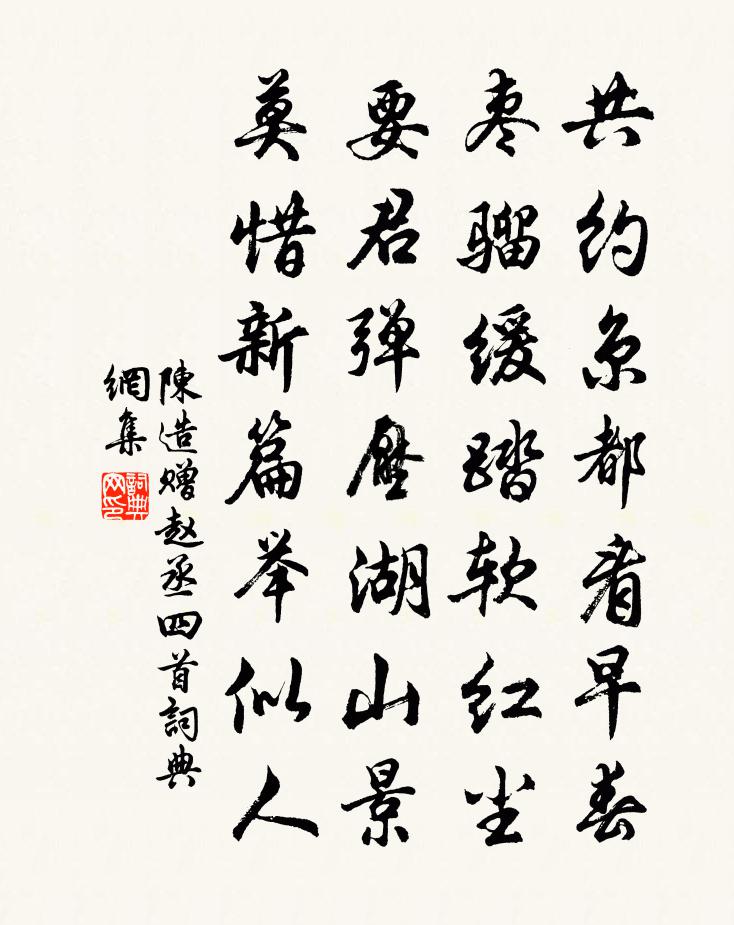 共约京都看早春
枣骝缓踏软红尘
要君弹压湖山景
莫惜新篇举似人
陳造赠赵丞四首詞典
網集
詞典网印